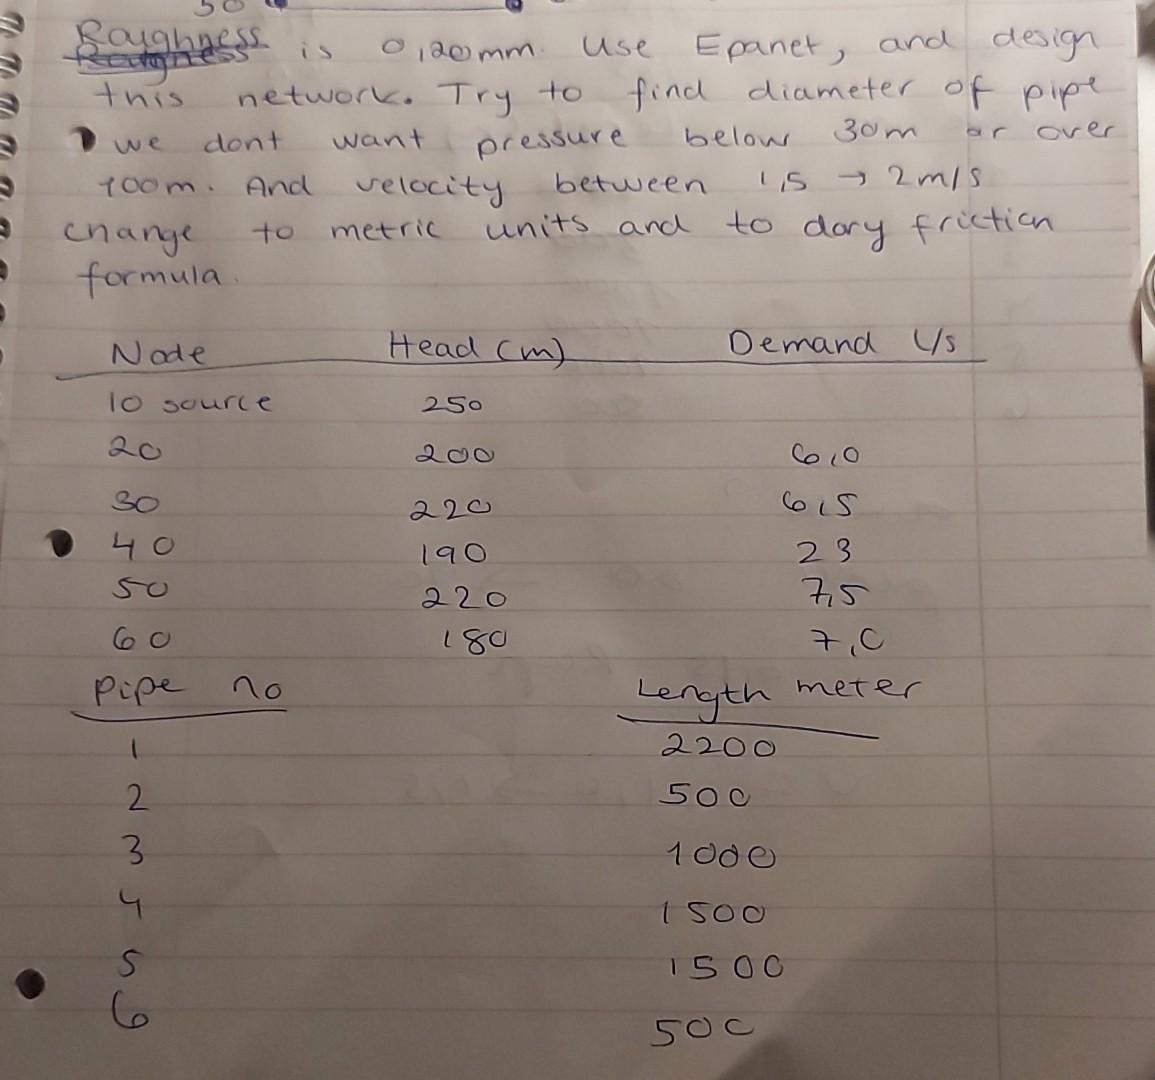 50
Roughness is 0,20mm. Use Epanet, and design
this network. Try to find diameter of pipe
we dont want pressure below 30m or over
100m. And velocity between 1,5 → 2m/s
change to metric units and to dary friction
formula.
Node Head (m) Demand L/s
10 source 250
20 200 6,0
30 220 6,5
40 190 23
50 220 7,5
60 180 7,0
Pipe no Length meter
1 2200
2 500
3 1000
4 1500
5 1500
6 500